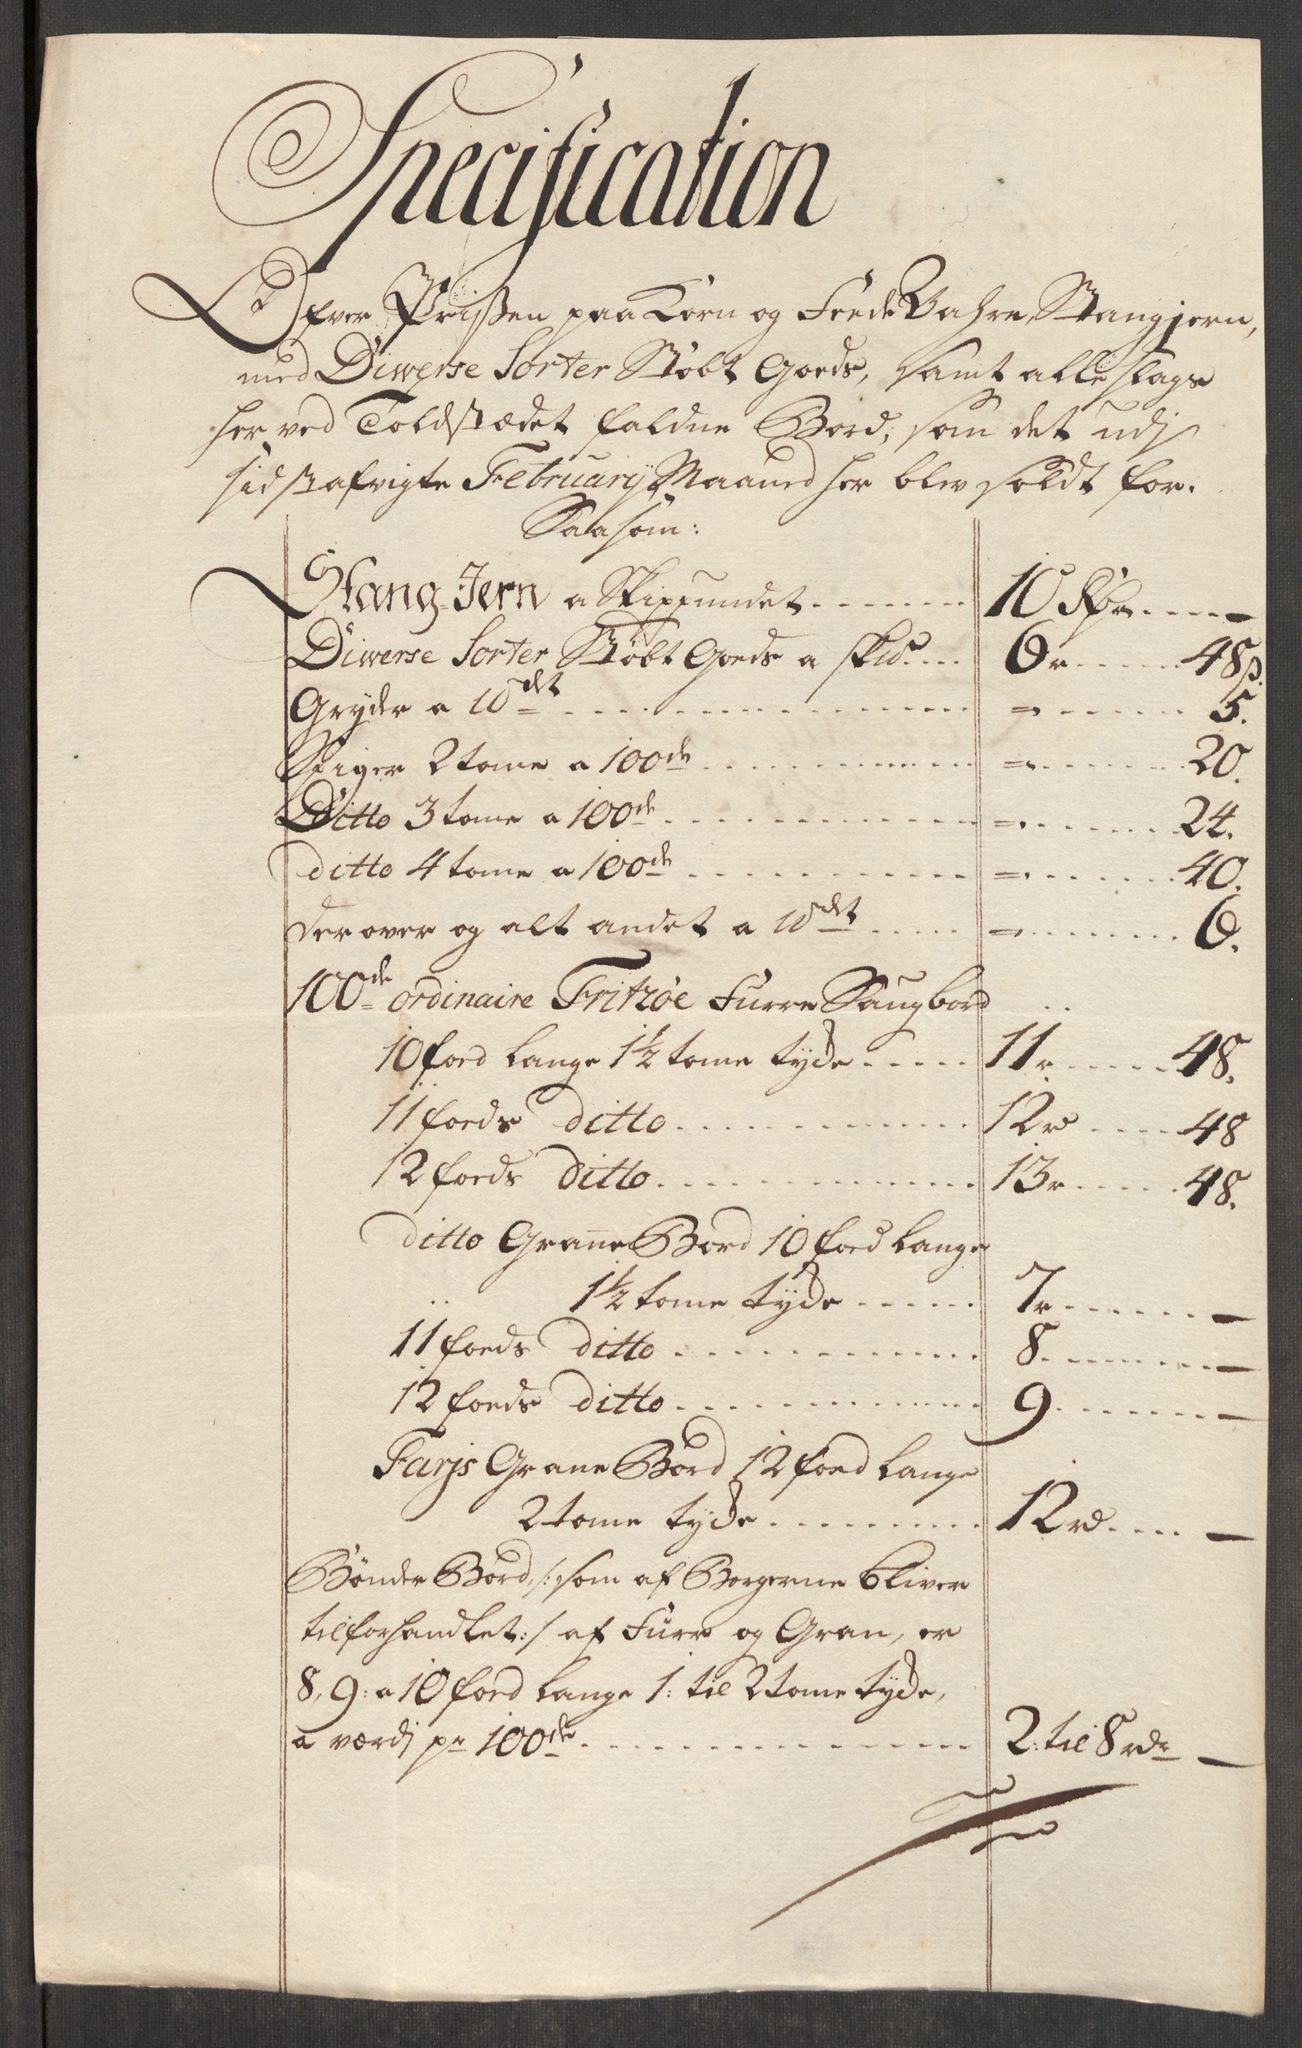 Specification
Ofver Prisßen paa Korn og Feede Vahre, Stangjern,
med Diverse Sorter Støbt Goeds, samt alle slags
her ved Toldstædet faldne Bord, som det udj
sidst afvigte February Maaned her blev soldt for.
Saasom:
Stang-Jern a Skippundet 10 Rdr —
Diverse Sorter Støbt Goeds a sk℔ 6 r 48 β.
Gryder a 10 det = 5.
Spiger 2 tome a 100de = 20.
Ditto 3 tome a 100de = 24.
ditto 4 tome a 100de = 40.
der over og alt andet a 10 det = 6.
100de ordinaire Fritzøe Furre Saugbord
10 foed lange 1½ tome tyde 11 r 48.
11 foeds ditto 12 rd 48
12 foeds ditto 13 r 48.
ditto Grane Bord 10 foed lange
1½ tome tyde 7 r —
11 foeds ditto 8 —
12 foeds ditto 9 —
Farjs Grane Bord 12 foed lange
2 tome tyde 12 rd —
Bønder Bord, /: som af Borgerne bliver
tilforhandlet :/ af Furr og Gran, er
8, 9: a 10 foed lange 1: til 2 tome tyde,
a værdj pr 100de 2: til 8 rdr —